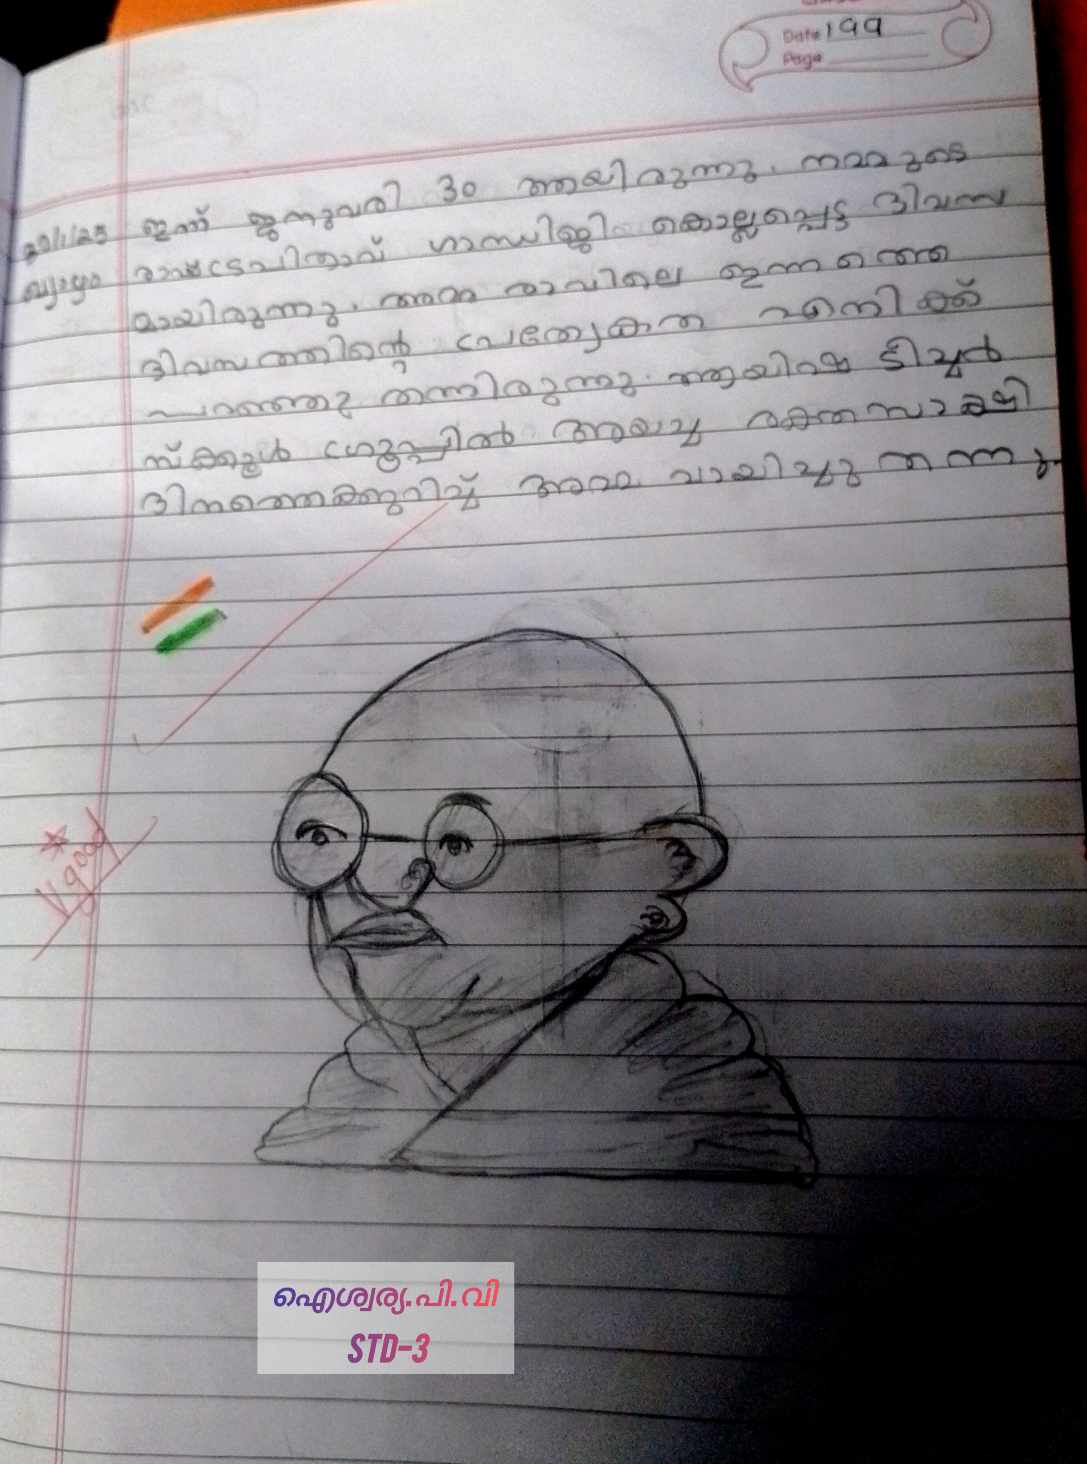 Date 199
Page
30/1/25 ഇന്ന് ജനുവരി 30 ആയിരുന്നു. നമ്മുടെ
വ്യാഴം രാഷ്ട്രപിതാവ് ഗാന്ധിജി കൊല്ലപ്പെട്ട ദിവസ
മായിരുന്നു. അമ്മ രാവിലെ ഇന്നത്തെ
ദിവസത്തിന്റെ പ്രത്യേകത എനിക്ക്
പറഞ്ഞു തന്നിരുന്നു. ആയിഷ ടീച്ചർ
സ്ക്കൂൾ ഗ്രൂപ്പിൽ അയച്ച രക്തസാക്ഷി
ദിനത്തെക്കുറിച്ച് അമ്മ വായിച്ചു തന്നു.
V. good
ഐശ്വര്യ.പി.വി
STD-3